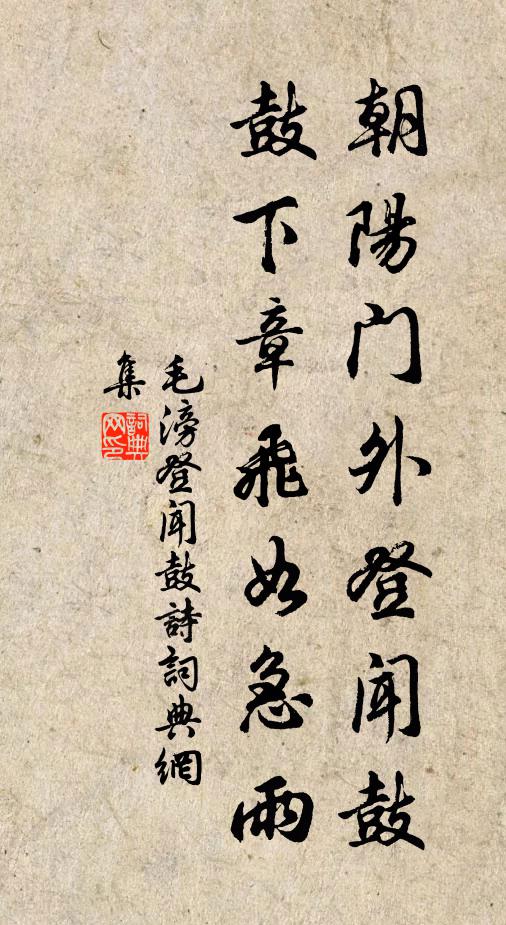 朝陽門外登聞鼓
鼓下章飛如急雨
毛滂登聞鼓詩詞典網
集
詞典
网印